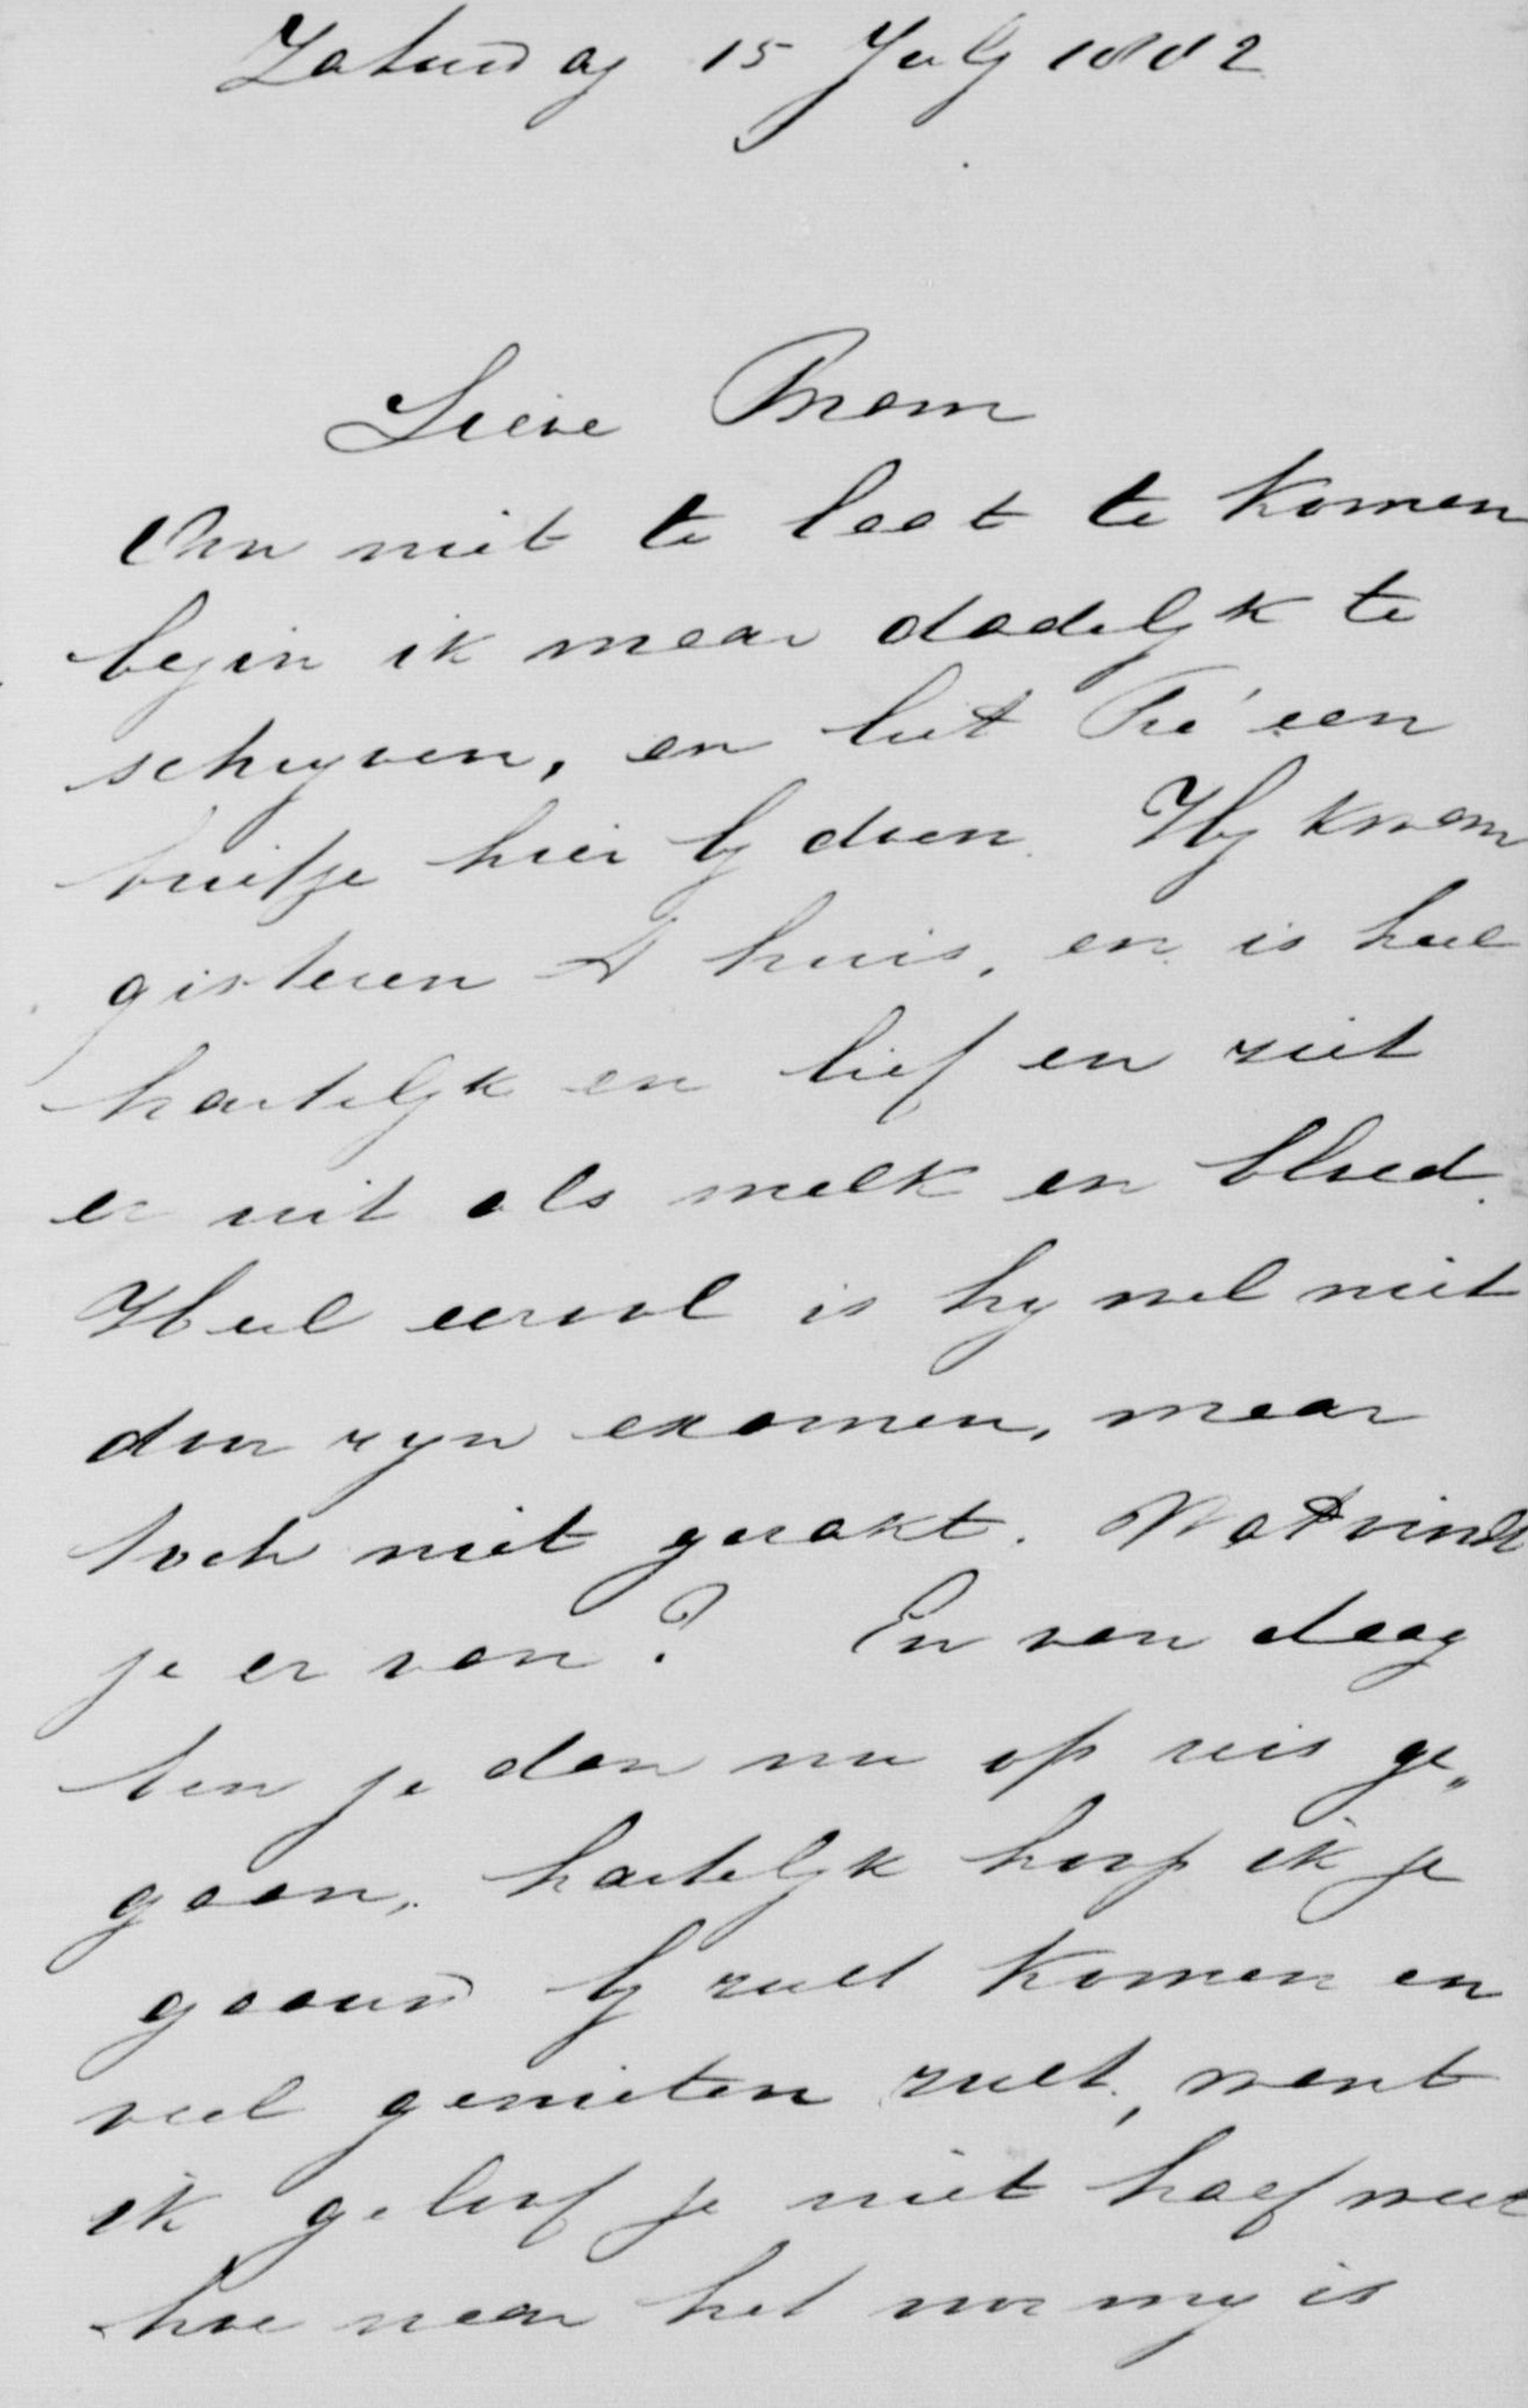 Zaturdag 15 July 1882
Lieve Mom
Om niet te laat te komen
begin ik maar dadelyk te
schryven, en liet een
briefje hier by doen. Hy kwam
gisteren t huis, en is heel
hartelyk en lief en ziet
er uit als melk en bloed.
Heel eervol is hy wel niet
door zyn examen, maar
toch niet gezakt. Wat vindt
je er van? En van daag
ben je dan nu op reis ge„
gaan, hartelyk hoop ik je
gaauw by zult komen en
veel genieten zult, want
ik geloof je niet half weet
hoe naar het voor my is